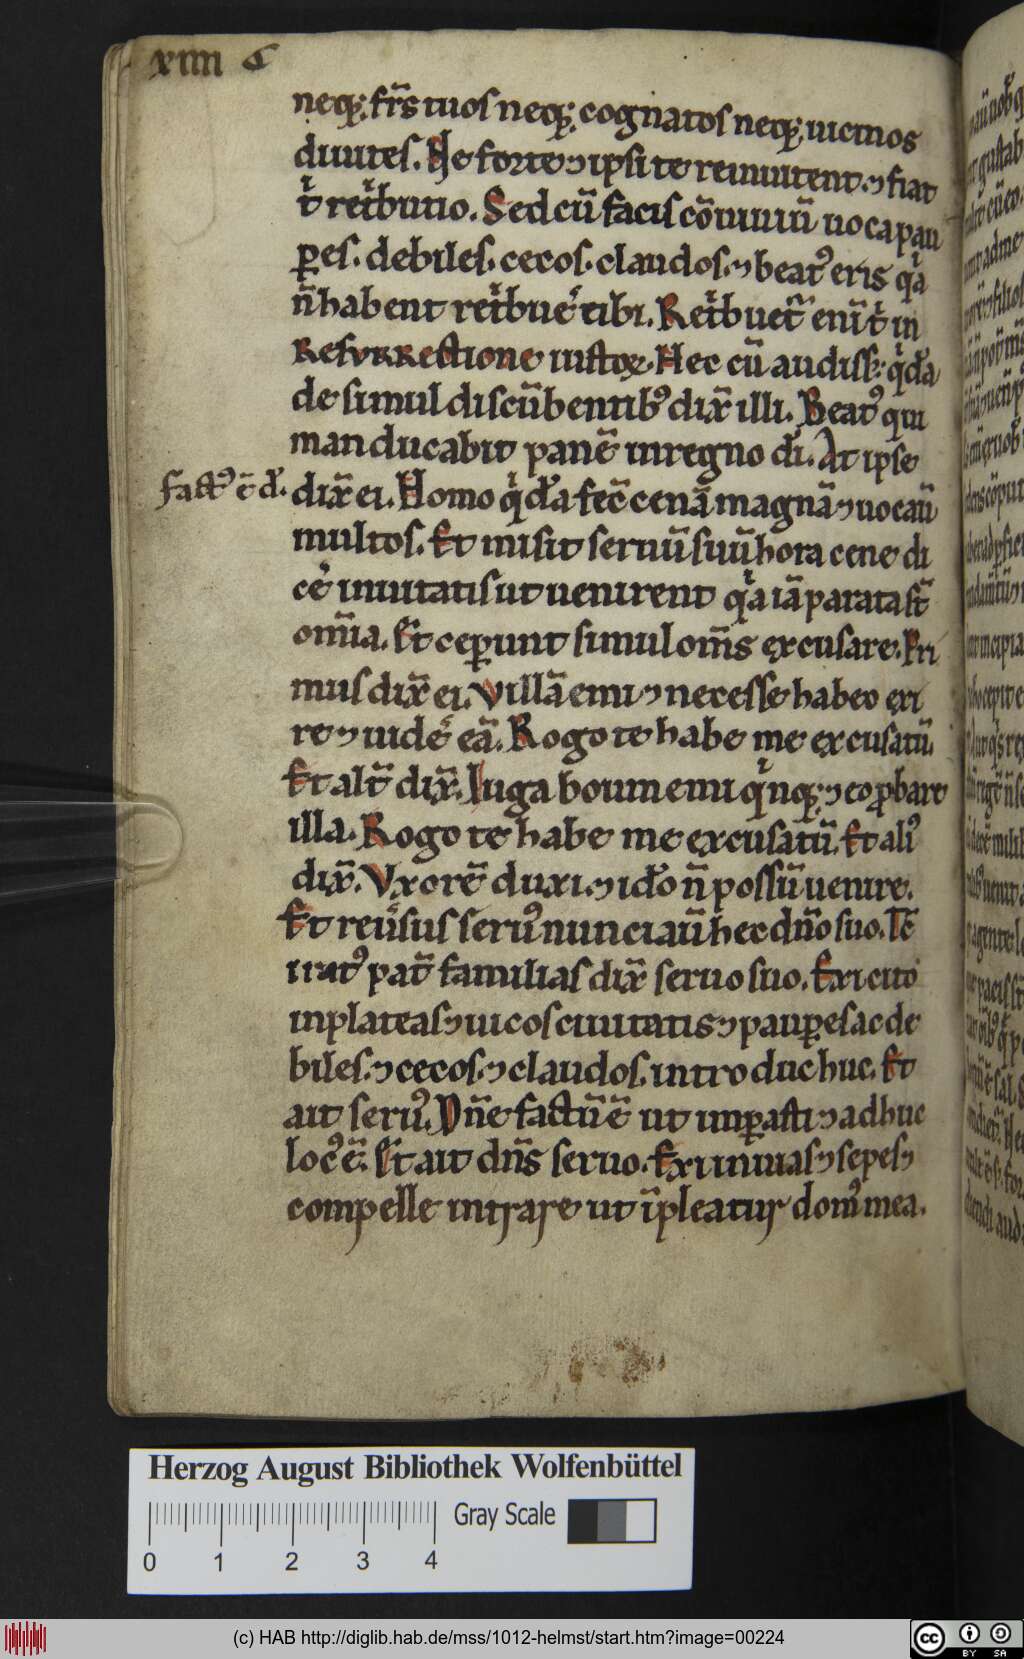 xiiii G
neq; fr̄s tuos neq; cognatos neq; uicinos
diuites. Ne forte ⁊ ipsi te reinuitent ⁊ fiat
t̊ ret̊butio. Sed cū facis cōuiuiū uoca pau
ꝑes. debiles. cecos. claudos. ⁊ beatꝰ eris qͥa
n̄ habent ret̊buē tibi. Ret̊buet̄ eni̅ t̊ in
Resurrectione iustoꝝ. Hec cū audiss; qͥda
de simul discūbentibꝰ dix̄ illi. Beatꝰ qui
manducabit panē in regno di̅. At ipse
factꝰ ē d̄.
dix̄ ei. Homo qͥda fec̄ cenā magnā ⁊ uocau̅
multos. Et misit seruū suū hora cene di
cē inuitatis ut uenirent qͥa iā parata st̄
om̄ia. Et ceꝑunt simul om̄s excusare. Pri
mus dix̄ ei. Villā emi ⁊ necesse habeo exi
re ⁊ uidē eā. Rogo te habe me excusatū.
Et alt̄ dix̄. Iuga boum emi qͥnq; ⁊ eo ꝓbare
illa. Rogo te habe me excusatū. Et aliꝰ
dix̄. Vxorē duxi ⁊ ido n̄ possū uenire.
Et reūsus seruꝰ nunciau̅ hec dn̄o suo. Tc̄
iratꝰ pat̄ familias dix̄ seruo suo. Exi cito
in plateas ⁊ uicos ciuitatis ⁊ pauꝑes ac de
biles. ⁊ cecos. ⁊ claudos. introduc huc. Et
ait seruꝰ. Dn̄e factū ē ut imꝑasti ⁊ adhuc
locꝰ ē. Et ait dn̄s seruo. Exi in uias ⁊ sepes ⁊
compelle intrare ut īpleatur domꝰ mea.
Herzog August Bibliothek Wolfenbüttel
Gray Scale
0 1 2 3 4
(c) HAB http://diglib.hab.de/mss/1012-helmst/start.htm?image=00224
cc BY SA